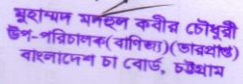 মুহাম্মদ মদহুল কবীর চৌধুরী
উপ-পরিচালক(বাণিজ্য)(ভারপ্রাপ্ত)
বাংলাদেশ চা বোর্ড, চট্টগ্রাম